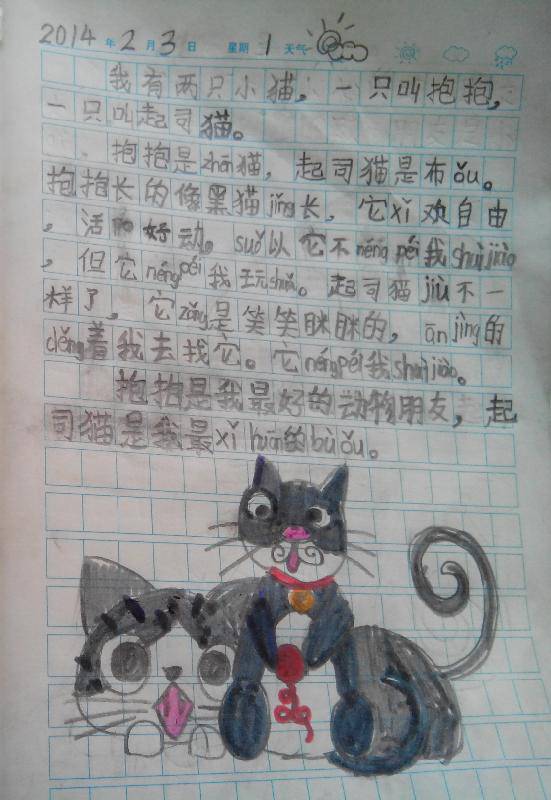 2014年2月3日 星期1 天气
我有两只小猫，一只叫抱抱，
一只叫起司猫。
抱抱是zhēn猫，起司猫是布ǒu。
抱抱长的像黑猫jǐng长，它xǐ欢自由
，活而好动。suǒ以它不néng péi我shuì jiào
，但它néng péi我玩shuǎ。起司猫jiù不一
样了，它zǒng是笑笑眯眯的，ān jìng的
děng着我去找它。它néng péi我shuì jiào。
抱抱是我最好的动物朋友，起
司猫是我最xǐ huān的bù ǒu。